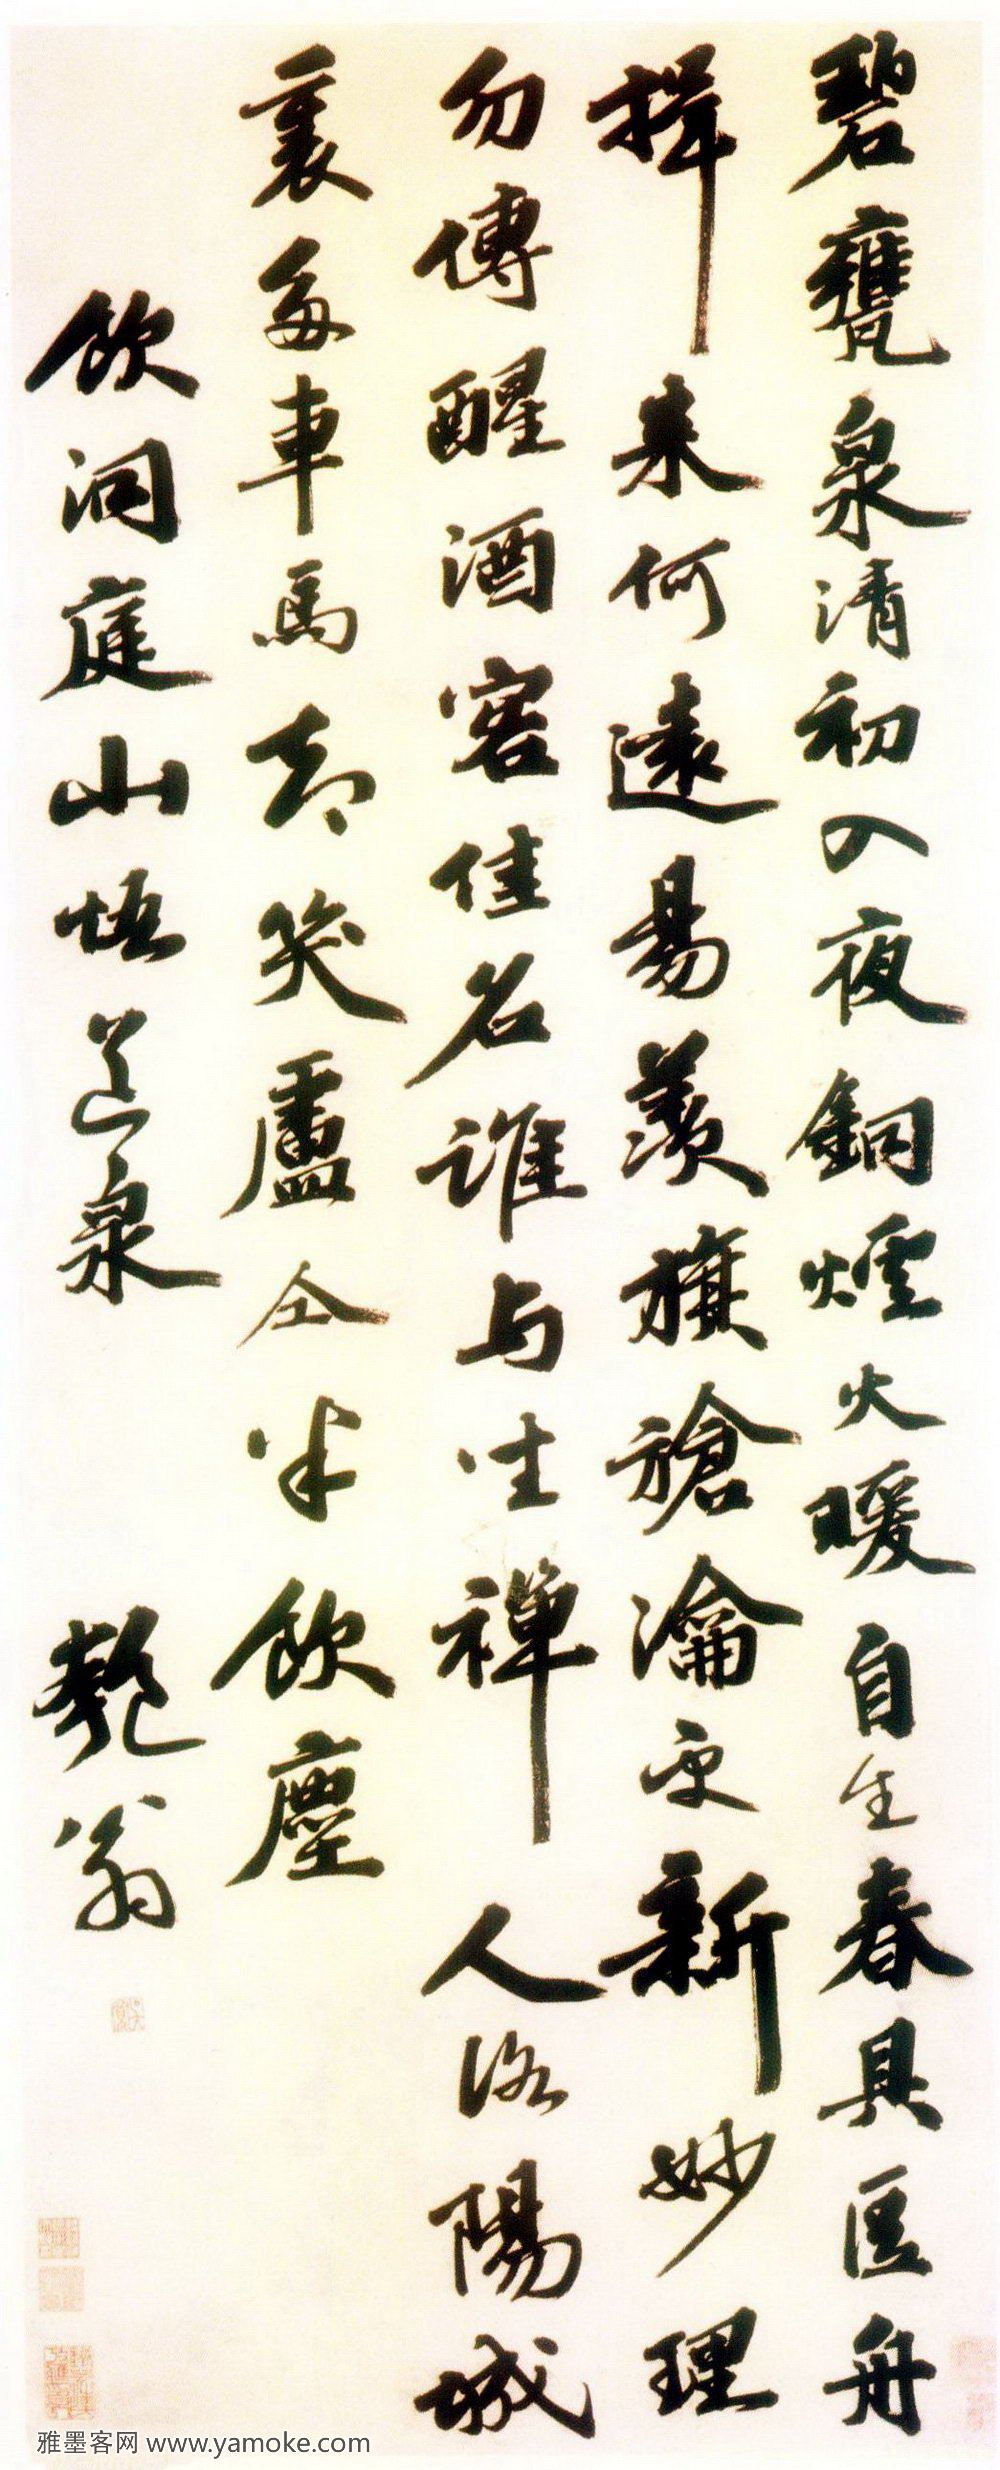 碧甕泉清初入夜銅爐火暖自生春具區舟
楫来何遠昜羨旗槍瀹更新妙理
勿傳醒酒客佳名誰与坐禪人洛陽城
裏多車馬却笑盧仝半飲塵
飲洞庭山悟道泉 匏翁
雅墨客网 www.yamoke.com